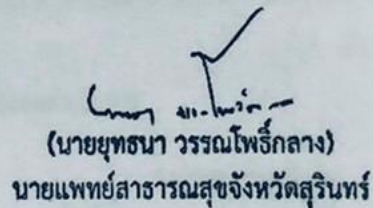 (นายยุทธนา วรรณโพธิ์กลาง)
นายแพทย์สาธารณสุขจังหวัดสุรินทร์